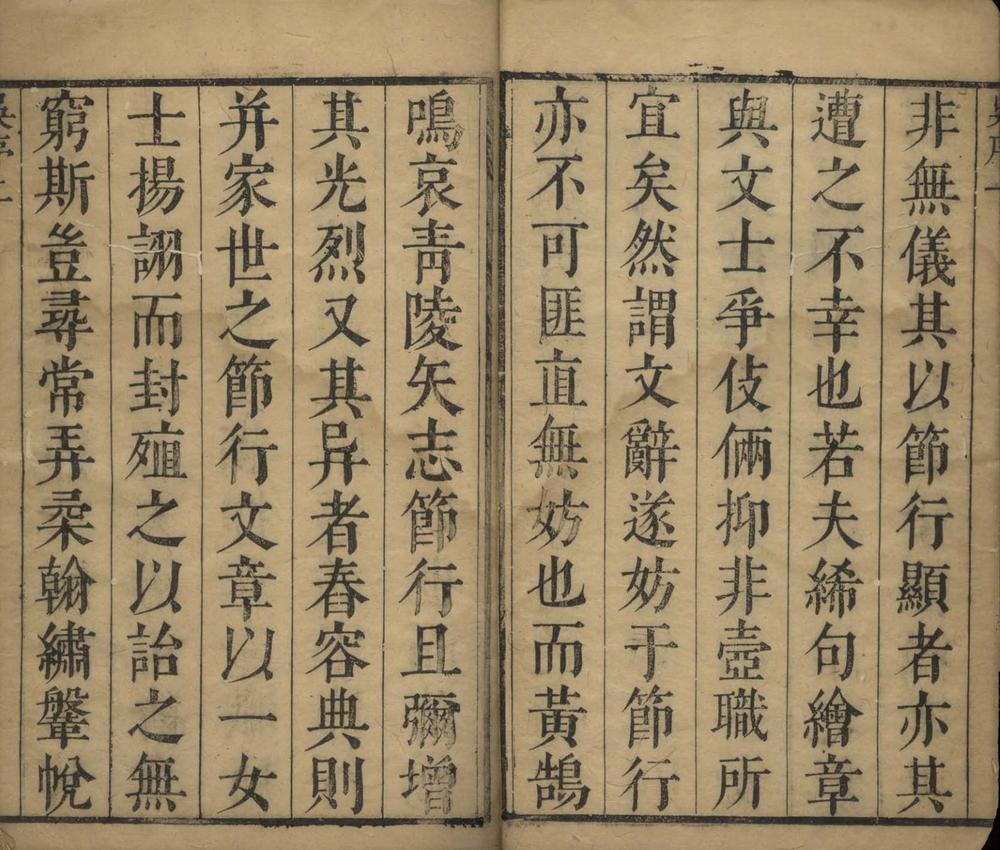 非無儀其以節行顯者亦其
遭之不幸也若夫絺句繪章
與文士爭伎倆抑非壼職所
宜矣然謂文辭遂妨于節行
亦不可匪直無妨也而黃鵠
鳴哀青陵矢志節行且彌增
其光烈又其异者舂容典則
并家世之節行文章以一女
士揚詡而封殖之以詒之無
窮斯豈尋常弄柔翰繡鞶帨